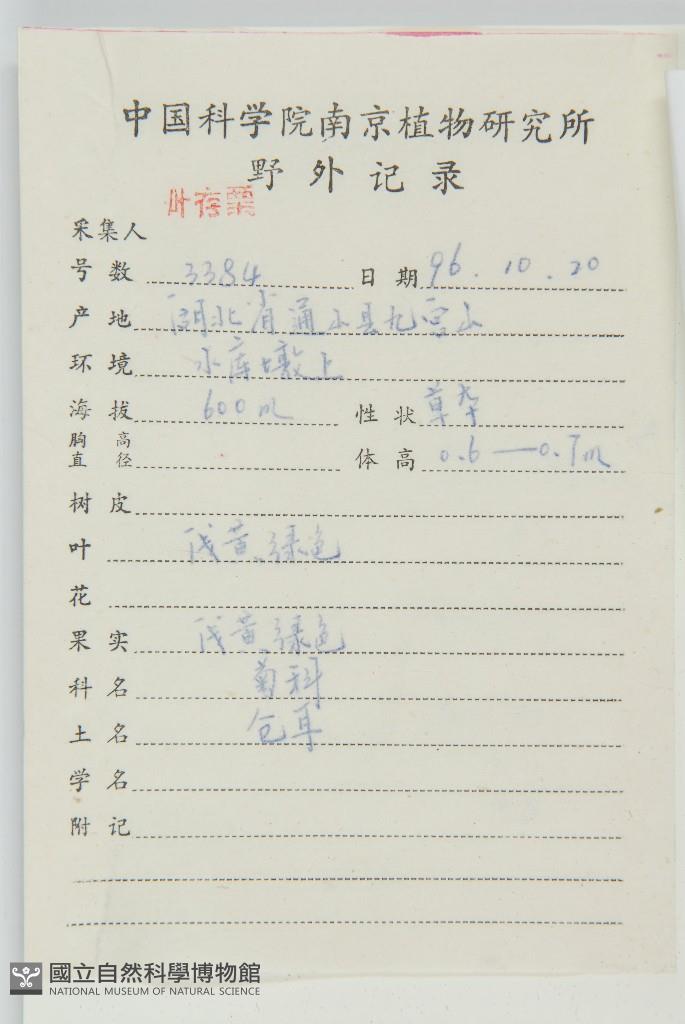 中国科学院南京植物研究所
野外记录
叶存栗
采集人
号数 3384 日期 96.10.20
产地 湖北省通山县九宫山
环境 水库墩上
海拔 600m 性状 草本
胸高直径 体高 0.6—0.7m
树皮
叶 浅黄绿色
花
果实 浅黄绿色
科名 菊科
土名 仓耳
学名
附记
國立自然科學博物館
NATIONAL MUSEUM OF NATURAL SCIENCE